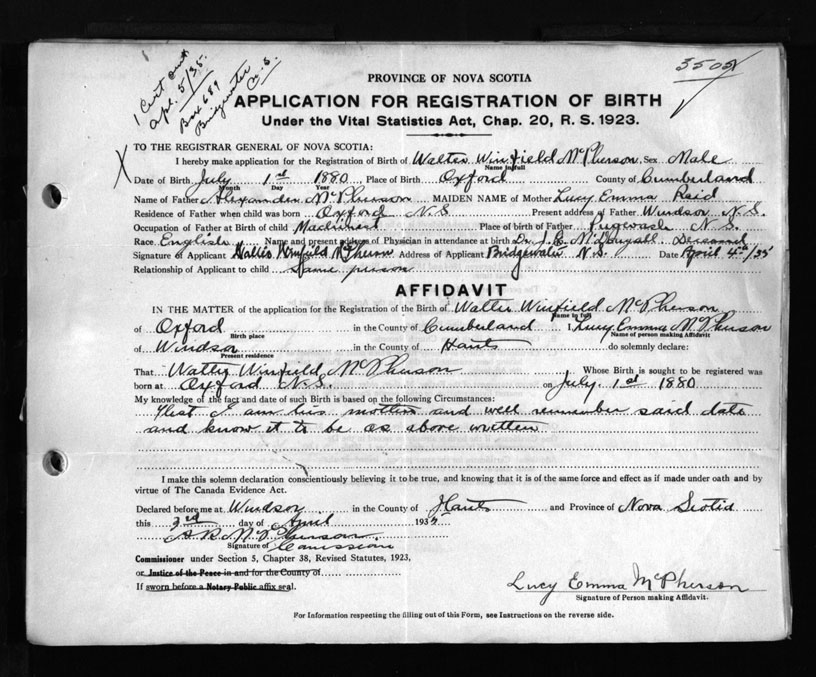 1 Cert sent
Apl. 5/35.
Box 689
Bridgewater
N.S.
3502
PROVINCE OF NOVA SCOTIA
APPLICATION FOR REGISTRATION OF BIRTH
Under the Vital Statistics Act, Chap. 20, R. S. 1923.
TO THE REGISTRAR GENERAL OF NOVA SCOTIA:
I hereby make application for the Registration of Birth of Walter Winfield McPherson Sex Male
Name in full
Date of Birth July 1st 1880 Place of Birth Oxford County of Cumberland
Month Day Year
Name of Father Alexander McPherson MAIDEN NAME of Mother Lucy Emma Reid
Residence of Father when child was born Oxford N.S Present address of Father Windsor N.S.
Occupation of Father at Birth of child Machinest Place of birth of Father Pugwash N.S.
Race English Name and present address of Physician in attendance at birth Dr. J. C. McDougall Deceased
Signature of Applicant Walter Winfield McPherson Address of Applicant Bridgewater N.S. Date April 4th/35
Relationship of Applicant to child Same person
AFFIDAVIT
IN THE MATTER of the application for the Registration of the Birth of Walter Winfield McPherson
Name in full
of Oxford in the County of Cumberland I, Lucy Emma McPherson
Birth place Name of person making Affidavit
of Windsor in the County of Hants do solemnly declare:
Present residence
That Walter Winfield McPherson Whose Birth is sought to be registered was
born at Oxford N.S. on July 1st 1880
My knowledge of the fact and date of such Birth is based on the following Circumstances:
That I am his mother and well remember said date
and know it to be as above written
I make this solemn declaration conscientiously believing it to be true, and knowing that it is of the same force and effect as if made under oath and by
virtue of The Canada Evidence Act.
Declared before me at Windsor in the County of Hants and Province of Nova Scotia
this 3rd day of April 1935
McPherson
Signature of Comission
Commissioner under Section 5, Chapter 38, Revised Statutes, 1923,
or Justice of the Peace in and for the County of
If sworn before a Notary Public affix seal.
Lucy Emma McPherson
Signature of Person making Affidavit.
For Information respecting the filling out of this Form, see Instructions on the reverse side.